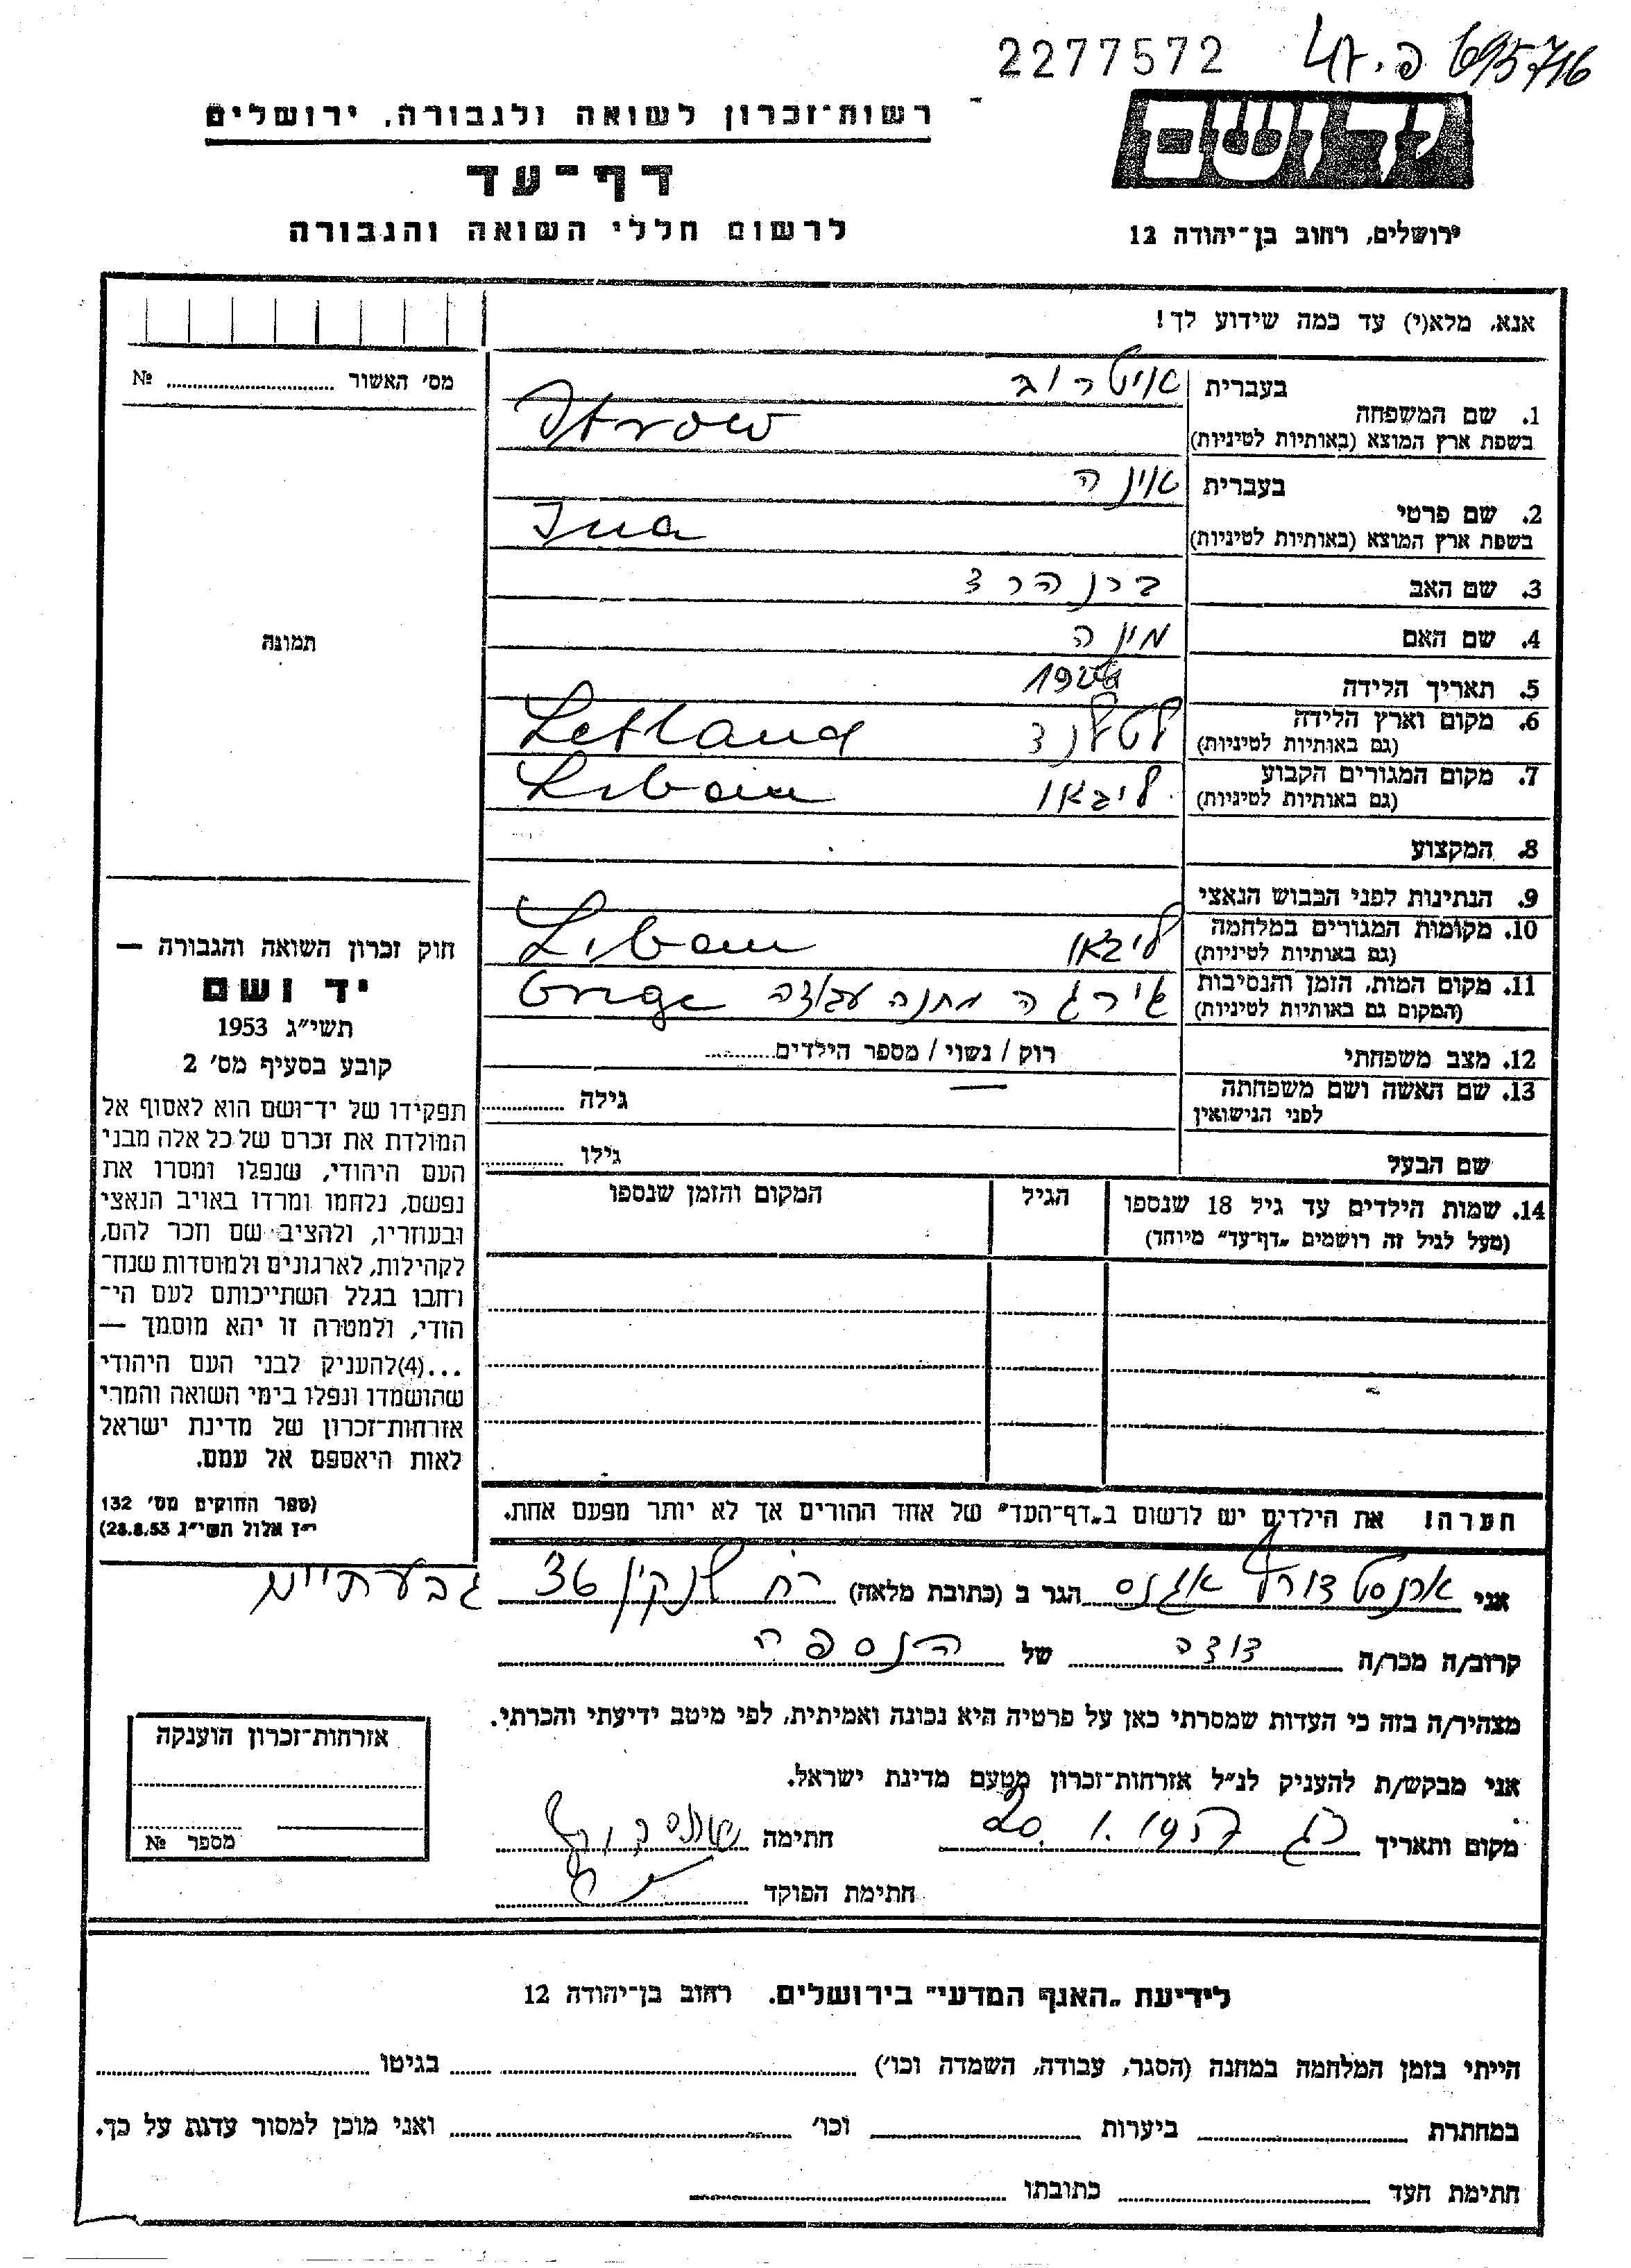 2277572
695716
רשות־זכרון לשואה ולגבורה, ירושלים
דף־עד
לרשום חללי השואה והגבורה
ידושם
ירושלים, רחוב בן־יהודה 12
אנא, מלא(י) עד כמה שידוע לך!
מס׳ האשור .......... №
תמונה
1. שם המשפחה בעברית איטרוב
בשפת ארץ המוצא (באותיות לטיניות) Itrow
2. שם פרטי בעברית אינה
בשפת ארץ המוצא (באותיות לטיניות) Ina
3. שם האב ברנהרד
4. שם האם מינה
5. תאריך הלידה
6. מקום וארץ הלידה לטלנד Letland
(גם באותיות לטיניות)
7. מקום המגורים הקבוע ליבאו Libau
(גם באותיות לטיניות)
8. המקצוע
9. הנתינות לפני הכבוש הנאצי
10. מקומות המגורים במלחמה ליבאו Libau
(גם באותיות לטיניות)
11. מקום המות, הזמן והנסיבות מחנה עבודה
(המקום גם באותיות לטיניות)
12. מצב משפחתי רוק / נשוי / מספר הילדים..........
13. שם האשה ושם משפחתה גילה ..........
לפני הנישואין
שם הבעל גילו ..........
14. שמות הילדים עד גיל 18 שנספו הגיל המקום והזמן שנספו
(מעל לגיל זה רושמים „דף־עד״ מיוחד)
הערה! את הילדים יש לרשום ב„דף־העד״ של אחד ההורים אך לא יותר מפעם אחת.
חוק זכרון השואה והגבורה —
יד ושם
תשי״ג 1953
קובע בסעיף מס׳ 2
תפקידו של יד־ושם הוא לאסוף אל
המולדת את זכרם של כל אלה מבני
העם היהודי, שנפלו ומסרו את
נפשם, נלחמו ומרדו באויב הנאצי
ובעוזריו, ולהציב שם וזכר להם,
לקהילות, לארגונים ולמוסדות שנח־
רחבו בגלל השתייכותם לעם הי־
הודי, ולמטרה זו יהא מוסמך —
...(4)להעניק לבני העם היהודי
שהושמדו ונפלו בימי השואה והמרי
אזרחות־זכרון של מדינת ישראל
לאות היאספם אל עמם.
(ספר החוקים מס׳ 132
י״ז אלול תשי״ג 28.8.53)
אני הגר ב (כתובת מלאה) רח׳ שנקין גבעתיים
קרוב/ה מכר/ה דודה של הנספה
מצהיר/ה בזה כי העדות שמסרתי כאן על פרטיה היא נכונה ואמיתית, לפי מיטב ידיעתי והכרתי.
אני מבקש/ת להעניק לנ״ל אזרחות־זכרון מטעם מדינת ישראל.
מקום ותאריך חתימה
חתימת הפוקד
אזרחות־זכרון הוענקה
מספר №
לידיעת „האגף המדעי״ בירושלים, רחוב בן־יהודה 12
הייתי בזמן המלחמה במחנה (הסגר, עבודה, השמדה וכו׳) .......... בגיטו ..........
במחתרת .......... ביערות .......... וכו׳ .......... ואני מוכן למסור עדות על כך.
חתימת העד .......... כתובתו ..........